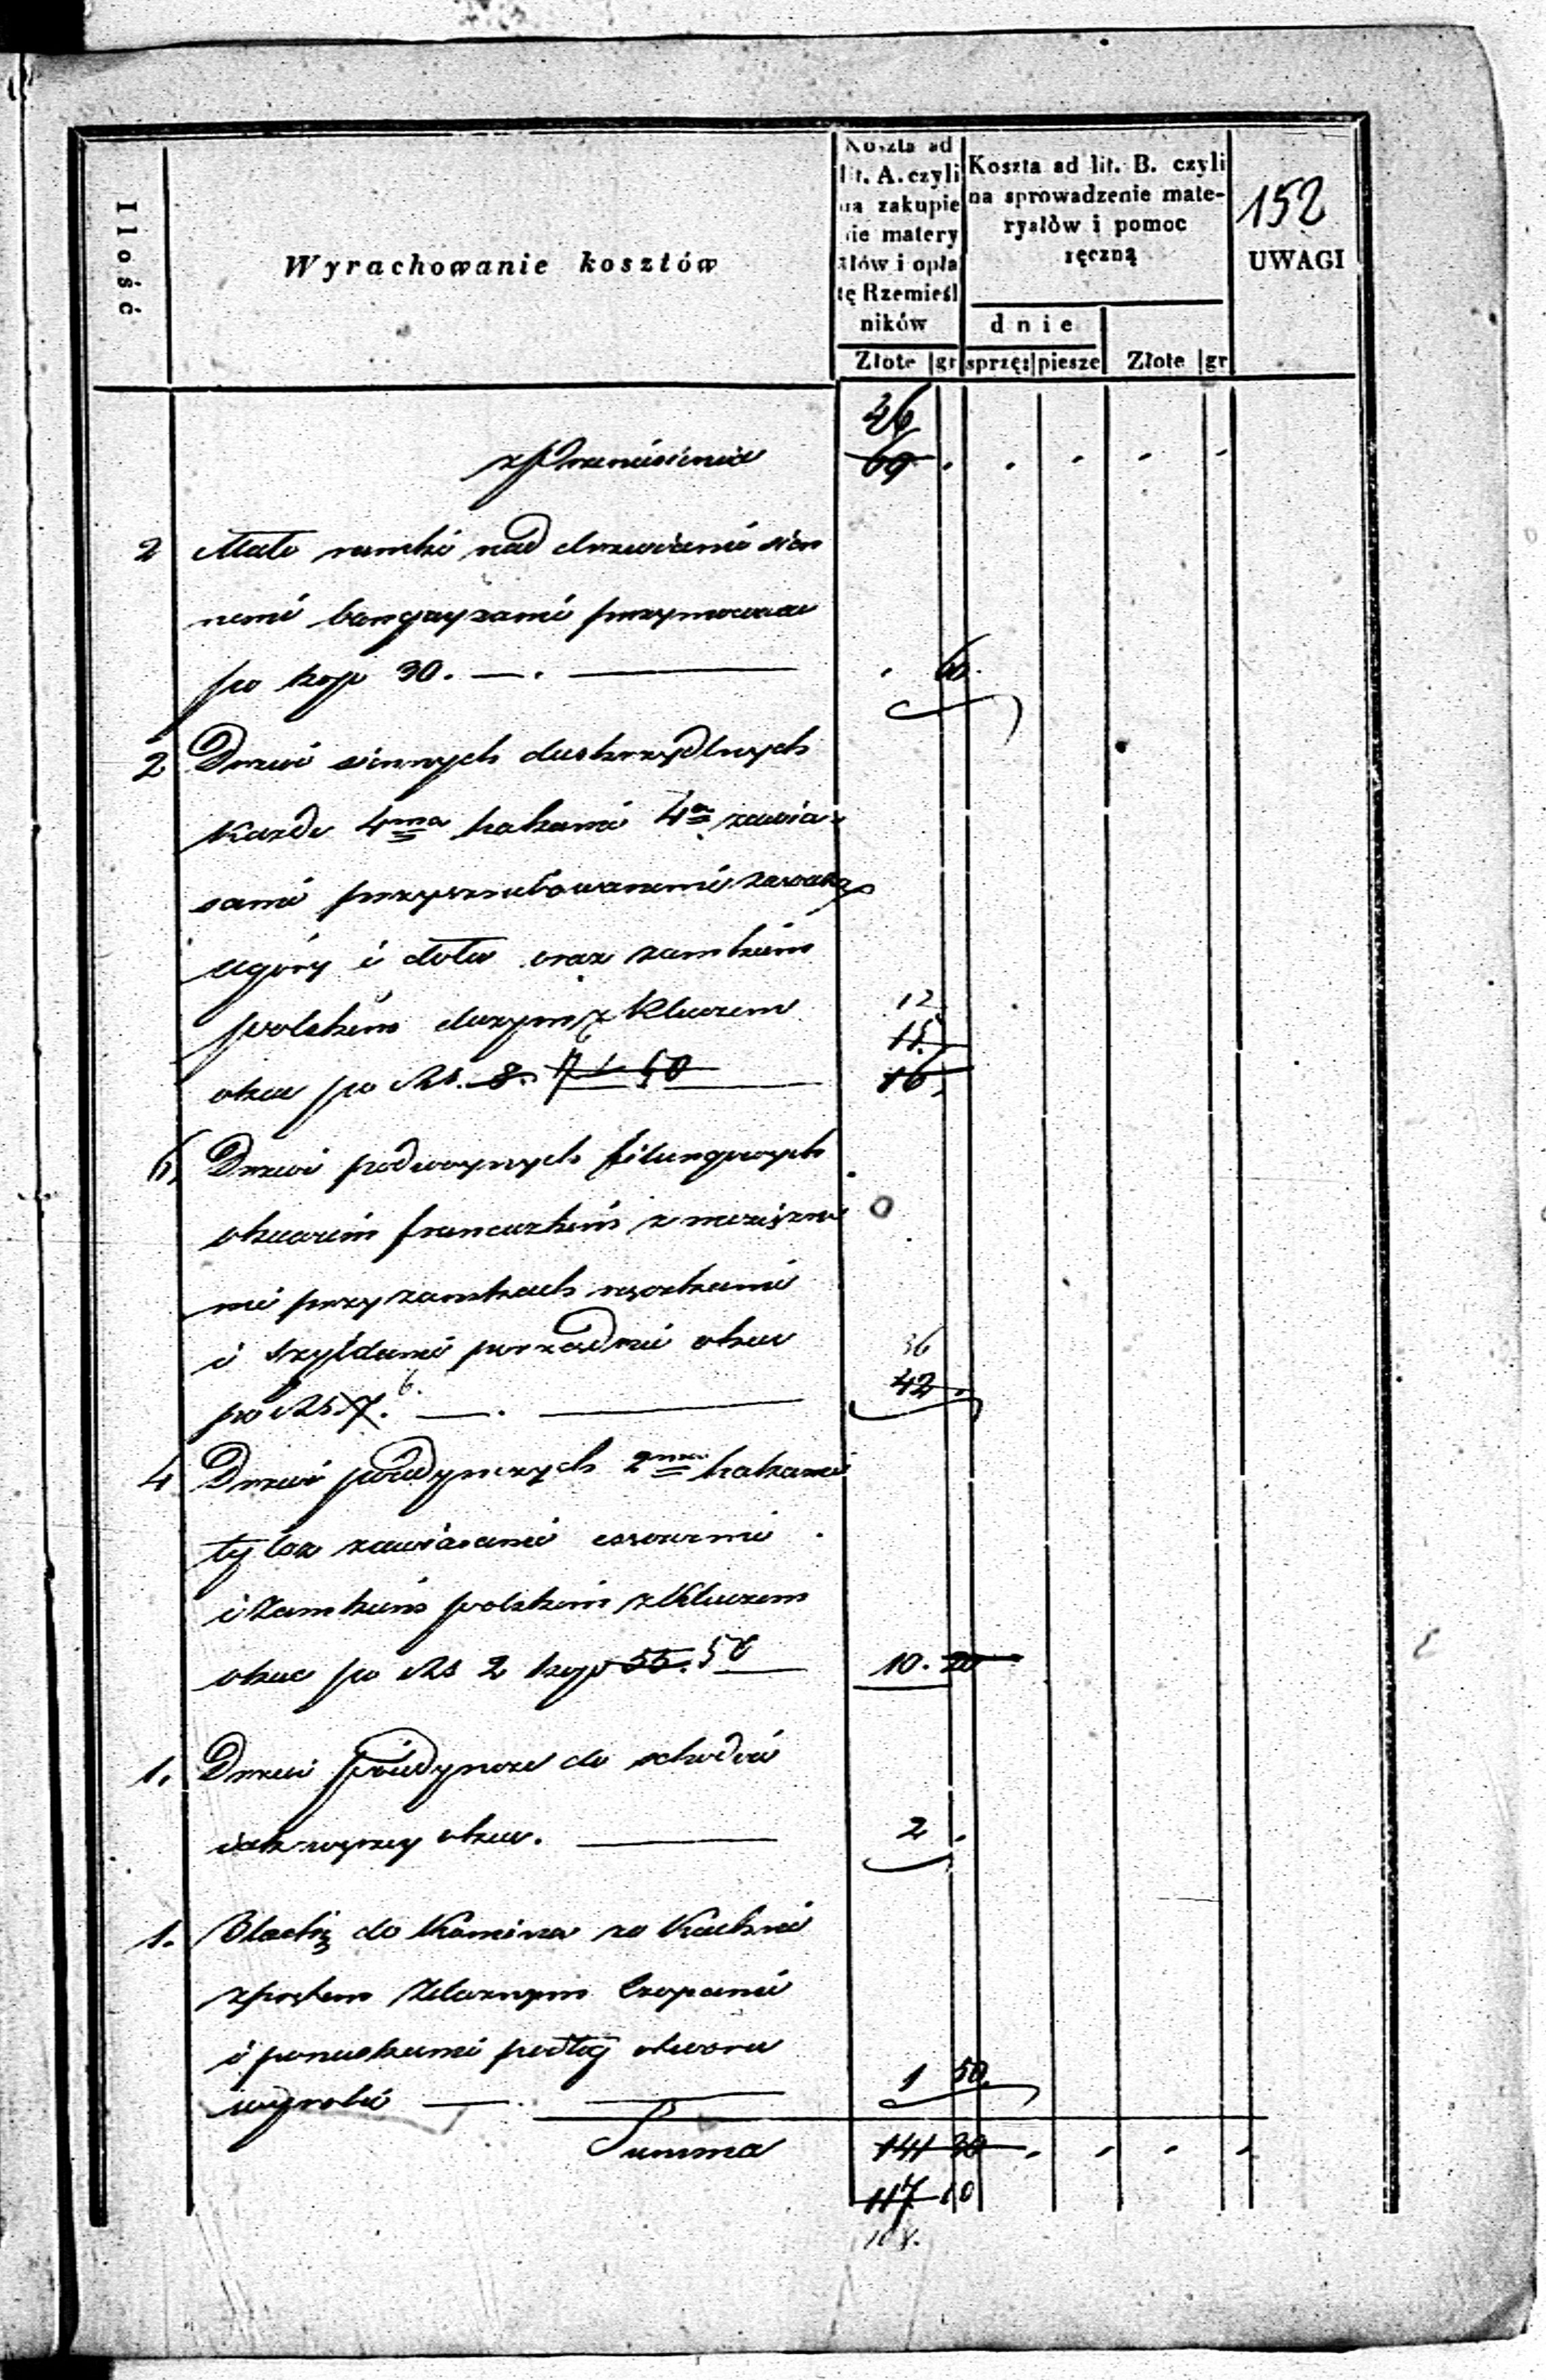 152
Ilość
Wyrachowanie kosztów
Koszta ad
lit. A. czyli
na zakupie
nie matery
ałów i opła
tę Rzemieśl
ników
Koszta ad lit. B. czyli
na sprowadzenie mate-
ryałów i pomoc
ręczną
dnie
UWAGI
Złote gr sprzę: piesze Złote gr
46
z Przeniesienia 69 . . . . .
2 Małe ramki nad drzwiami sien
nemi
po kop 30. — . — . 60.
2 Drzwi siennych duskrzydłnych
Każde 4ma hakami 4a zawia-
sami przyszrubowanemi
u góry i dołu oraz zamkiem
polskim dużym z Kluczem 12
15
okuć po Rs. 8. 7 50 — 16.
6 Drzwi podwoynych filungowych
okuciem francuzkim z mosiężne
mi przy zamkach
i szyldami porządnie okuć 36
po Rs 7. 6. — . — 42.
4 Drzwi poiedynczych 2ma hakami
tyloż zawiasami
i Zamkiem polskim z Kluczem
okuć po Rs 2 kop 55. 50 — 10. 20
1. Drzwi poiedyncze do schodów
iak wyżey okuć. — 2 .
1. Blachę do Komina w Kuchni
z prętem żelaznym czopami
i podług otworu
wyrobić — . — 1 50.
Summa 141 30 . . . .
117 10
108.